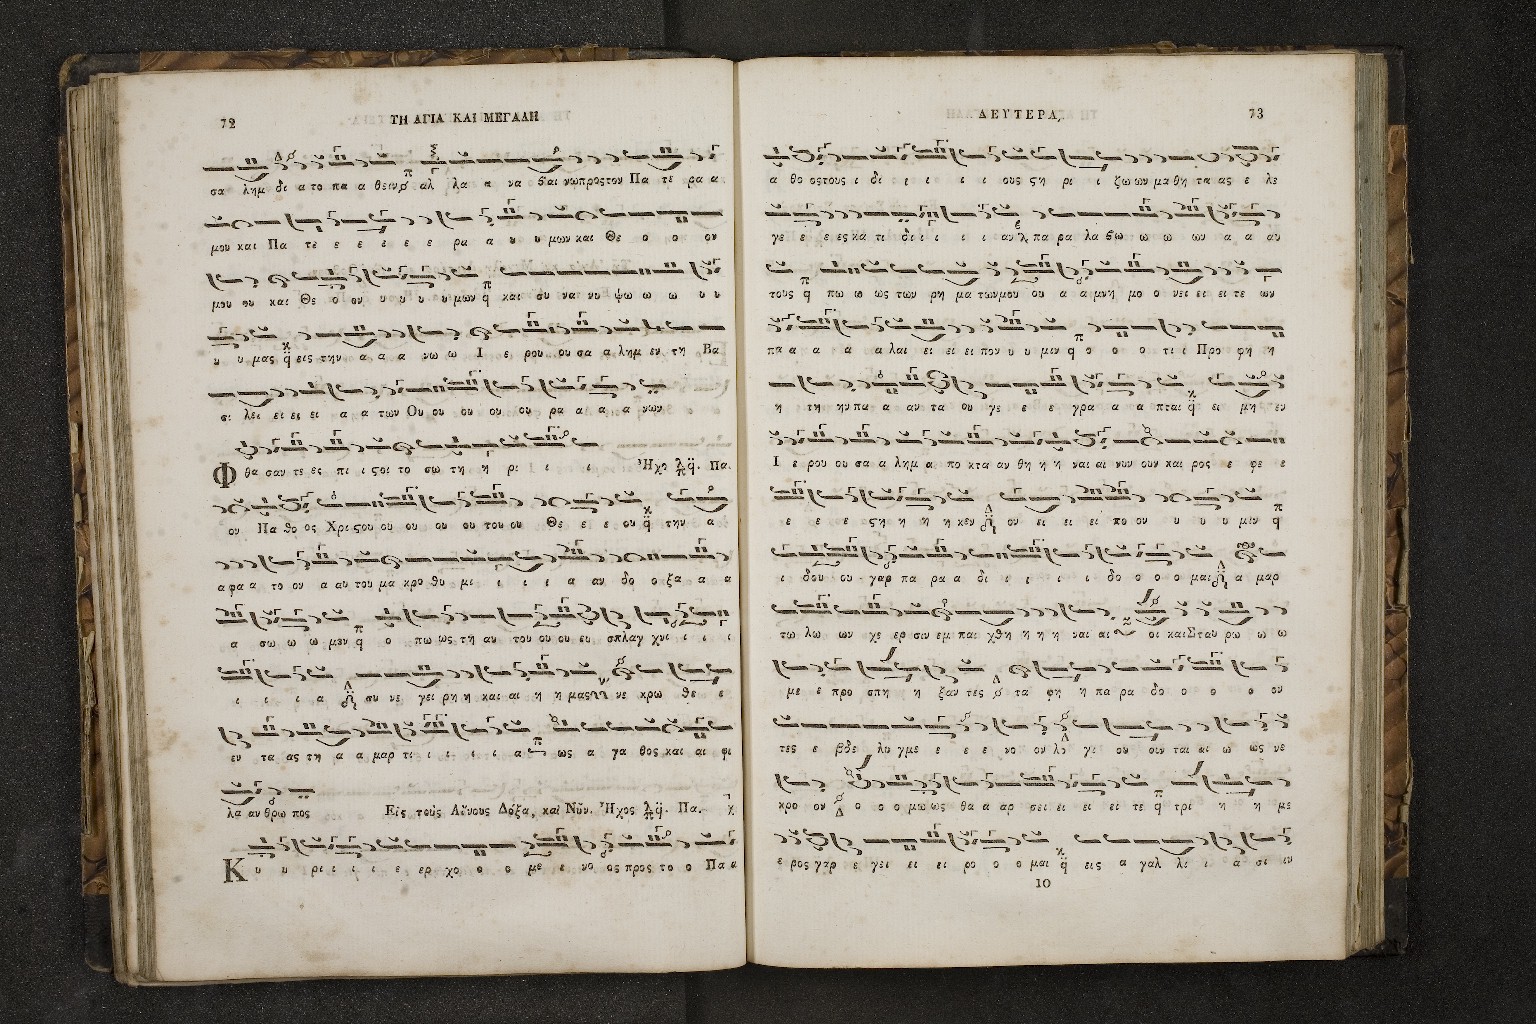 72
ΤΗ ΑΓΙΑ ΚΑΙ ΜΕΓΑΛΗ
σα λημ δι α το πα α θειν αλ λα α να βαι νω προς τον Πα τε ρα α
μου και Πα τε ε ε ε ε ε ρα α υ υ μων και Θε ο ο ον
μου ου και Θε ο ον υ υ υ υ μων και συ να νυ ψω ω ω υ υ
υ υ μας εις την α α α νω ω Ι ε ρου ου σα α λημ εν τη Βα
σι λει ει ει ει α α των Ου ου ου ου ου ρα α α α νων
Φ θα σαν τε ες πι ι ςοι το σω τη η ρι ι ι Ἦχο Πα.
ον Πα θο ος Χρι ςου ου ου ου ου του ου Θε ε ε ου την α
α φα α το ον α αυ του μα κρο θυ μι ι ι ι α αν δο ο ξα α α
α σω ω ω μεν ο πω ως τη αυ του ου ου ευ σπλαγ χνι ι ι ι
ι ι ι α συ νε γει ρη η και αι η η μας νε κρω θε ε
εν τα ας τη α α μαρ τι ι ι ι ι α ως α γα θος και αι φι
λα αν θρω πος Εἰς τοὺς Αἴνους Δόξα, καὶ Νῦν. Ἦχος Πα.
Κ υ υ ρι ι ι ε ερ χο ο ο με ε νο ος προς το ο Πα α
ΔΕΥΤΕΡΑ,
73
α θο ος τους ι δι ι ι ι ι ους ςη ρι ι ζω ων μα θη τα ας ε λε
γε ε ε ες κα τι δι ι ι ι ι αν πα ρα λα βω ω ω ων α α αυ
τους πω ω ως των ρη μα των μου ου α α μνη μο ο νει ει ει τε ων
πα α α α α λαι ει ει ει πον υ υ μιν ο ο ο τι ι Προ φη η
η τη ην πα α αν τα ου γε ε ε γρα α α πται ει μη εν
Ι ε ρου ου σα α λημ α πο κτα αν θη η η ναι αι νυν ουν και ρος ε φε ε
ε ε ε ςη η η η κεν ον ει ει ει πο ον υ υ υ μιν
ι δου ου γαρ πα ρα α δι ι ι ι ι δο ο ο ο μαι α μαρ
τω λω ων χε ερ σιν εμ παι χθη η η η ναι αι οι και Σταυ ρω ω ω
με ε προ σπη η ξαν τες τα φη η πα ρα δο ο ο ο ον
τες ε βδε λυ γμε ε ε ε νο ον λο γι ου ουν ται αι ω ως νε
κρο ον ο ο ο μω ως θα α αρ σει ει ει ει τε τρι η η με
ε ρος γαρ ε γει ει ει ρο ο ο μαι εις α γαλ λι ι α σι ιν
10